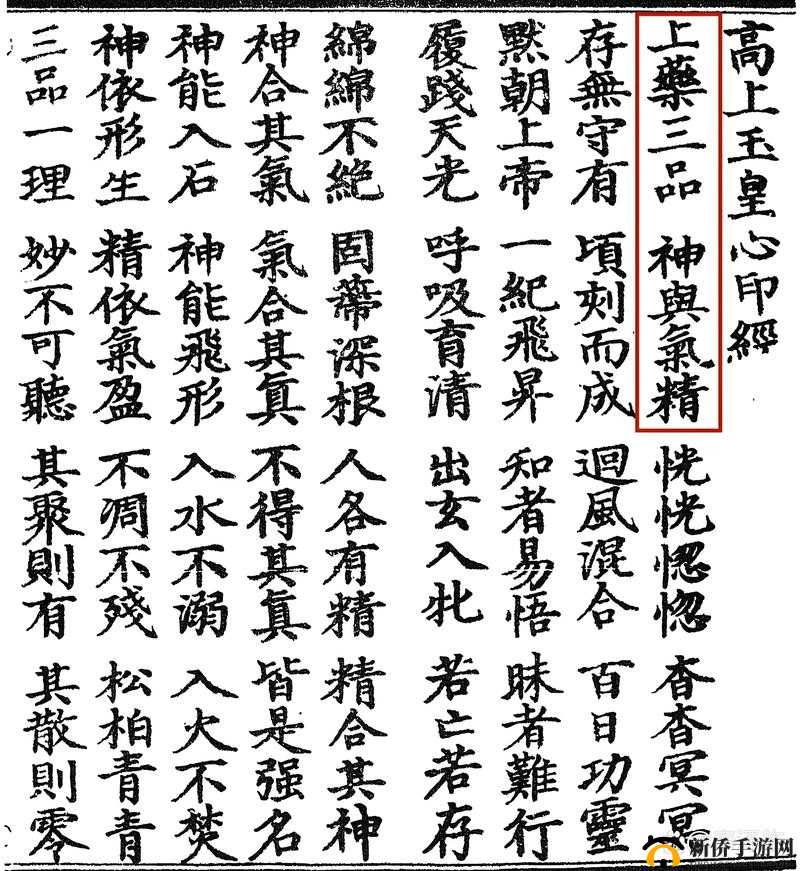 高上玉皇心印經
上藥三品 神與氣精 恍恍惚惚 杳杳冥冥
存無守有 頃刻而成 迴風混合 百日功靈
默朝上帝 一紀飛昇 知者易悟 昧者難行
履踐天光 呼吸育清 出玄入牝 若亡若存
綿綿不絕 固蔕深根 人各有精 精合其神
神合其氣 氣合其真 不得其真 皆是强名
神能入石 神能飛形 入水不溺 入火不焚
神依形生 精依氣盈 不凋不殘 松柏青青
三品一理 妙不可聽 其聚則有 其散則零
新侨手游网